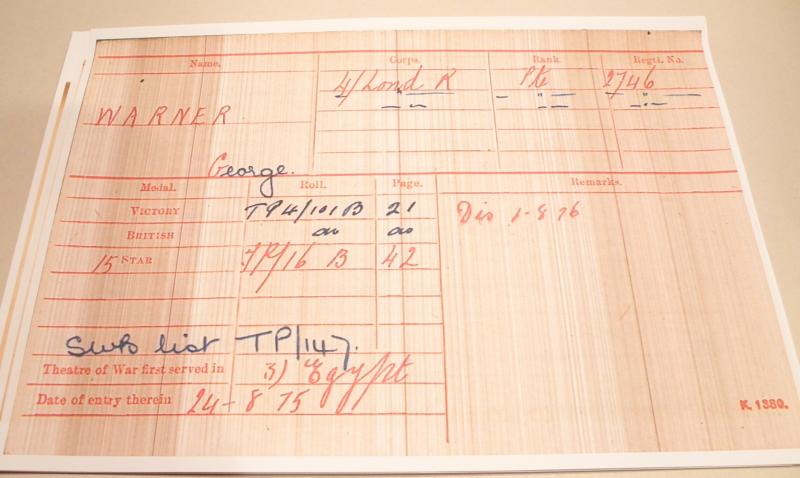 Name. Corps. Rank Regtl. No.
4/Lond R Pte 2746
" " "
WARNER
George.
Medal. Roll. Page. Remarks.
VICTORY TP4/101B 21 Dis 1-8 16
BRITISH do do
15 STAR TP/16 B 42
SWB list TP/147.
Theatre of War first served in 3) Egypt
Date of entry therein 24-8 15
K. 1380.